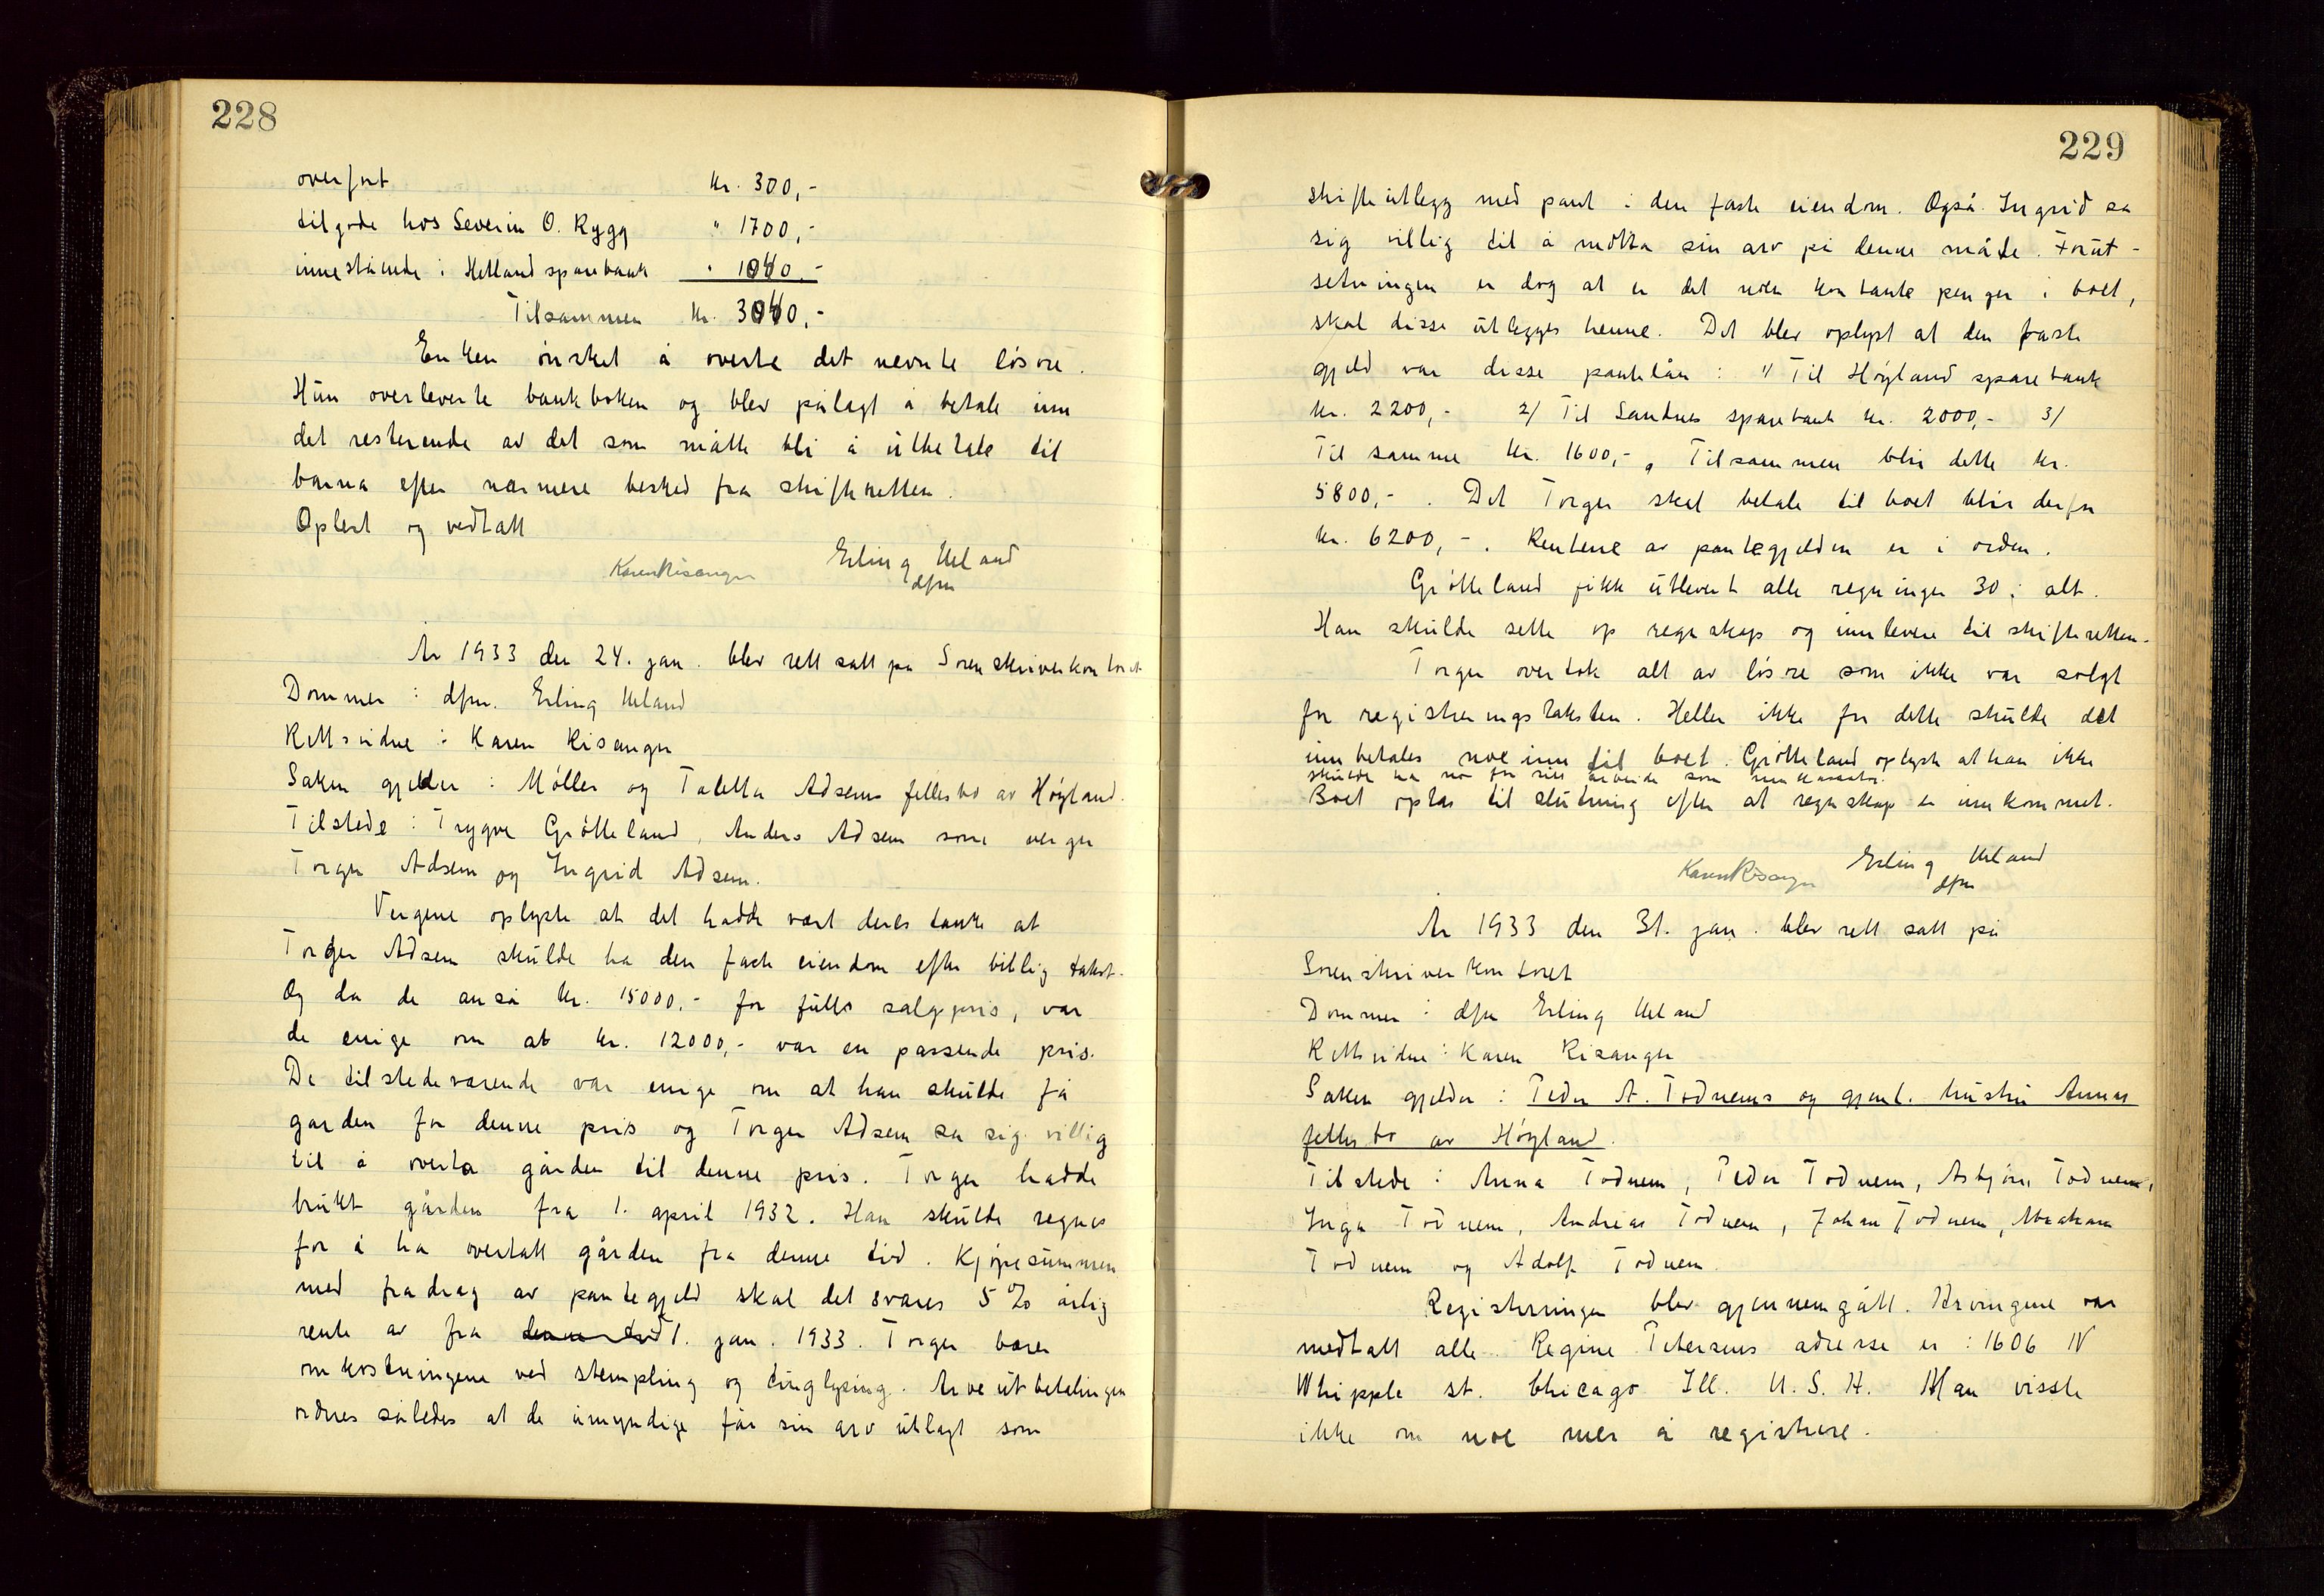 228
overført kr. 300,-
tilgode hos Severin O. Rygg " 1700,-
innestående i Hetland sparebank " 1040,-
Tilsammen kr. 3040,-
Enken ønsket å overta det nevnte løsøre.
Hun overleverte bankboken og blev pålagt å betale inn
det resterende av det som måtte bli å utbetale til
barna efter nærmere beskjed fra skifteretten.
Oplest og vedtatt
Karen Risanger Erling Ueland
dfm
År 1933 den 24. jan. blev rett satt på Sorenskriverkontoret
Dommer : dfm. Erling Ueland
Rettsvidne : Karen Risanger
Saken gjelder : Møller og Taletta Adsems fellesbo av Høyland.
Tilstede : Trygve Grøtteland, Anders Adsem som verger
Torger Adsem og Ingrid Adsem.
Vergene oplyste at det hadde vært deres tanke at
Torger Adsem skulde ha den faste eiendom efter billig takst.
Og da de anså kr. 15000.- for full salgspris, var
de enige om at kr. 12000,- var en passende pris.
De tilstedeværende var enige om at han skulde få
garden for denne pris og Torger Adsem sa sig villig
til å overta gården til denne pris. Torger hadde
brukt gården fra 1. april 1932. Han skulde regnes
for å ha overtatt gården fra denne tid. Kjøpesummen
med fradrag av pantegjeld skal det svares 5 % årlig
rente av fra denne tid 1. jan. 1933. Torger bærer
omkostningene ved stempling og tinglysing. Arveutbetalingen
ordnes således at de umyndige får sin arv utlagt som
229
skifteutlegg med pant i den faste eiendom. Også Ingrid sa
sig villig til å motta sin arv på denne måte. Forut-
setningen er dog at er det noen kontante penger i boet,
skal disse utlegges henne. Det blev oplyst at den faste
gjeld var disse pantelån : 1/ Til Høyland sparebank
kr. 2200,- 2/ Til Sandnes sparebank kr. 2000,- 3/
Til samme kr. 1600,-, Tilsammen blir dette kr.
5800,-. Det Torger skal betale til boet blir derfor
kr. 6200,-. Rentene av pantegjelden er i orden.
Grøtteland fikk utlevert alle regninger 30 i alt.
Han skulde sette op regnskap og innlevere til skifteretten.
Torger overtok alt av løsøre som ikke var solgt
for registreringstaksten. Heller ikke for dette skulde det
innbetales noe inn til boet. Grøtteland oplyste at han ikke
skulde ha noe for sitt arbeide som innkassator.
Boet optas til slutning efter at regnskap er innkommet.
Karen Risanger Erling Ueland
dfm
År 1933 den 31. jan. blev rett satt på
Sorenskriverkontoret
Dommer : dfm Erling Ueland
Rettsvidne : Karen Risanger
Saken gjelder : Peder A. Todnems og gjenl. hustru Annas
fellesbo av Høyland.
Tilstede : Anna Todnem, Peder Todnem, Asbjørn Todnem,
Inga Todnem, Andreas Todnem, Johan Todnem, Abraham
Todnem og Adolf Todnem.
Registreringen blev gjennemgått. Arvingene var
medtatt alle. Regine Petersens adresse er : 1606 N
Whipple st. Chicago Ill. U.S.A. Man visste
ikke om noe mer å registrere.